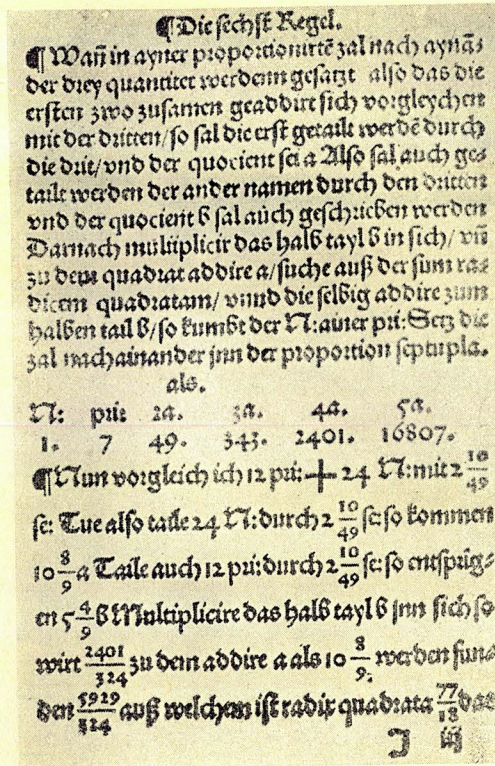 ¶ Die sechst Regel.
¶ Wañ in ayner proportionirtē zal nach aynā⸗
der drey quantitet werdenn gesatzt also das die
ersten zwo zusamen geaddirt sich vorgleychen
mit der dritten/so sal die erst getailt werdē durch
die drit/vnd der quocient sei a Also sal auch ge⸗
tailt werden der ander namen durch den dritten
vnd der quocient b sal auch geschrieben werden
Darnach multiplicir das halb tayl b in sich/ vñ
zu dem quadrat addire a/suche auß der sum ra⸗
dicem quadratam/ vnnd die selbig addire zum
halben tail b/so kumbt der N: ainer pri: Setz die
zal nachainander jnn der proportion septupla.
als.
N: pri: 2a. 3a. 4a. 5a.
1. 7 49. 343. 2401. 16807.
¶ Nun vorgleich ich 12 pri: + 24 N: mit 2 10/49
se: Tue also taile 24 N: durch 2 10/49 se: so kommen
10 8/9 a Taile auch 12 pri: durch 2 10/49 se: so entsprīg⸗
en 5 4/9 b Multiplicire das halb tayl b jnn sich so
wirt 2401/324 zu dem addire a als 10 8/9. werden fun⸗
den 5929/324 auß welchem ist radix quadrata 77/18 das
J iij